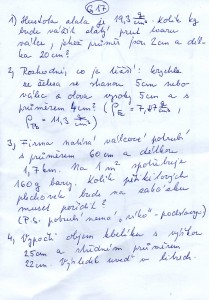 G17
1) Hustota zlata je 19,3 g/cm³. Kolik kg
bude vážit zlatý prut tvaru
válce, jehož průměr je 2cm a dél-
ka 20cm?
2) Rozhodni, co je těžší: krychle
ze železa se stranou 5cm nebo
válec z olova výšky 5cm a s
průměrem 4cm? (ρ = 7,87 g/cm³,
ρPb = 11,3 g/cm³)
3) Firma natírá válcové potrubí
s průměrem 60cm a délkou
1,7km. Na 1m² spotřebuje
160g barvy. Kolik pětikilových
plechovek bude na zakázku
muset pořídit?
(P.S. potrubí nemá "víko" - podstavy)
4) Vypočti objem kbelíku s výškou
25cm a středním průměrem
22cm. Výsledek uveď v litrech.